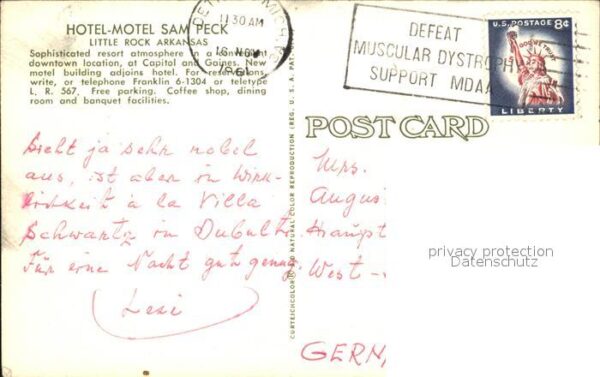 HOTEL-MOTEL SAM PECK
LITTLE ROCK ARKANSAS
Sophisticated resort atmosphere in a convenient
downtown location, at Capitol and Gaines. New
motel building adjoins hotel. For reservations,
write, or telephone Franklin 6-1304 or teletype
L. R. 567. Free parking. Coffee shop, dining
room and banquet facilities.
DETROIT, MICH.
11 30 AM
16 NOV
1961
DEFEAT
MUSCULAR DYSTROPHY
SUPPORT MDAA
U.S. POSTAGE 8¢
IN GOD WE TRUST
LIBERTY
POST CARD
CURTEICHCOLOR NATURAL COLOR REPRODUCTION (REG. U. S. A. PAT.
Sieht ja sehr nobel
aus, ist aber in Wirk-
lichkeit à la Villa
Schwartz in Dubulti.
Für eine Nacht gut genug.
Lexi
Mrs.
Augus
Haupt
West-
GERN,
privacy protection
Datenschutz